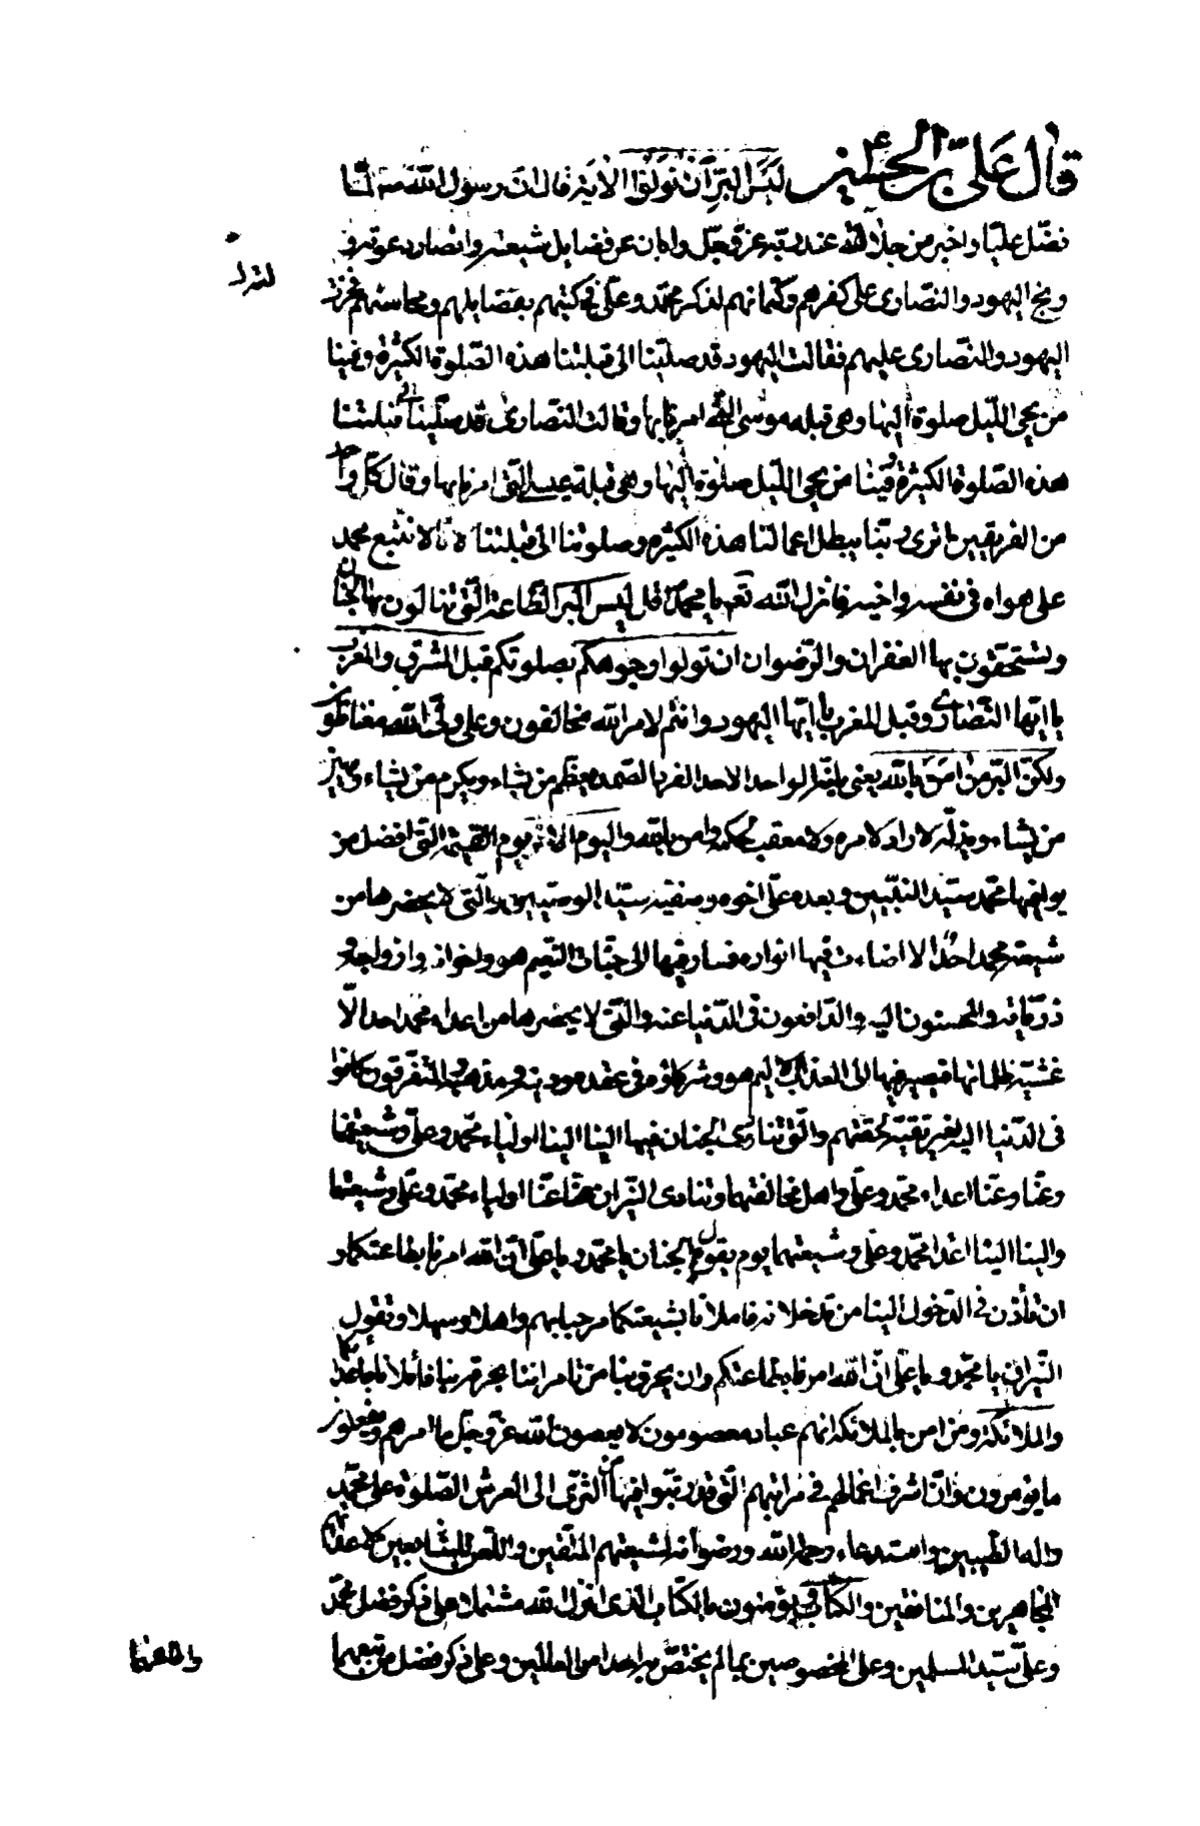 قال علىّ بن الحسين ع ليس البر أن تولوا الآية قال ان رسول الله ص لما
فضّل عليّا واخبر من جلالته عند ربه عزّ وجلّ وابان عن فضايل شيعته وانصار دعوته و
وبخ اليهود والنصارى على كفرهم وكتمانهم لذكر محمّد وعلىّ فى كتبهم بفضايلهم ومحاسنهم فخرت
اليهود والنصارى عليهم فقالت اليهود قد صلّينا الى قبلتنا هذه الصّلوة الكثيرة وفينا
من يحيى اللّيل صلوة اليها وهى قبلة موسى الّتى امرنا بها وقالت النصارى قد صلّينا الى قبلتنا
هذه الصّلوة الكثيرة وفينا من يحيى اللّيل صلوة اليها وهى قبلة عيسى الّتى امرنا بها وقال كلّ واحد
من الفريقين اترى ربّنا يبطل اعمالنا هذه الكثيرة وصلوتنا الى قبلتنا لانّا لا نتّبع محمد
على هواه فى نفسه واخيه فانزل الله تعه يا محمّد قل ليس البر الطّاعة الّتى تنالون بها الجنان
وتستحقون بها الغفران والرّضوان ان تولوا وجوهكم بصلوتكم قبل المشرق والمغرب
يا ايّها النّصارى وقبل المغرب يا ايّها اليهود وانتم لامر الله مخالفون وعلى ولىّ الله مغتاظون
ولكنّ البرّ من امن بالله يعنى بانّه الواحد الاحد الفرد الصمد يعظّم من يشاء ويكرم من يشاء ويهين
من يشاء ويذلّه لا رادّ لامره ولا معقب لحكمه وامن بالله واليوم الاخر يوم القيمة الّتى افضل من
يوافيها محمّد سيّد النبيّين وبعده علىّ اخوه وصفيّه سيّد الوصيّين والّتى لا يحضرها من
شيعة محمد احد الا اضاءت فيها انواره فسار فيها الى جنّات النّعيم هو واخوانه وازواجه و
ذرّيّاته والمحسنون اليه والدّافعون فى الدّنيا عنه والّتى لا يحضرها من اعداء محمد احد الّا
غشيته ظلماتها فيصير فيها الى العذاب الاليم هو وشركاؤه فى عقده ودينه ومذهبه والمتقرّبون كانوا
فى الدّنيا اليه لغير تقيّة لحقتهم والّتى تنادى الجنان فيها الينا الينا اولياء محمّد وعلىّ وشيعتهما
وعنّا وعنّا اعداء محمّد وعلىّ واهل مخالفتهما وتنادى النّيران عنّا عنّا اولياء محمّد وعلىّ وشيعتهما
والينا الينا اعداء محمّد وعلىّ وشيعتهما يوم يقول الجنان يا محمّد ويا علىّ انّ الله امرنا بطاعتكما و
ان تأذن فى الدّخول الينا من تدخلانه فاملانا بشيعتكما مرحبا بهم واهلا وسهلا وتقول
النّيران يا محمّد ويا علىّ انّ الله امرنا بطاعتكم وان يحرق بنا من تامراننا بحرقه بنا فاملانا باعدائكما
والملائكة ومن امن بالملائكة انّهم عباد معصومون لا يعصون الله عزّ وجلّ ما امرهم ويفعلون
ما يؤمرون وانّ اشرف اعمالهم فى مراتبهم الّتى قد رتّبوا فيها من الثرّى الى العرش الصّلوة على محمّد
واله الطّيبين واستدعاء رحمة الله ورضوانه لشيعتهم المتّقين واللّعن للمتابعين لاعدائهم
المجاهرين والمنافقين والكتاب يؤمنون بالكتاب الّذى انزل الله مشتملا على ذكر فضل محمّد
وعلىّ سيّد المسلمين وعلى المخصوصين بما لم يختصّ به احدا من العالمين وعلى ذكر فضل من تبعهما